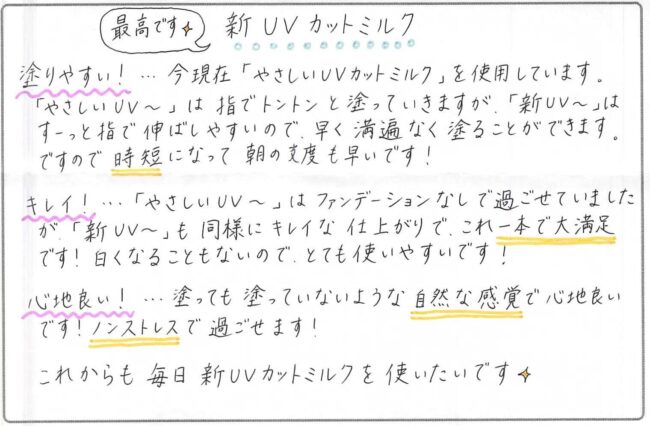 最高です 新UVカットミルク
塗りやすい！…今現在「やさしいUVカットミルク」を使用しています。
「やさしいUV〜」は指でトントンと塗っていきますが、「新UV〜」は
すーっと指で伸ばしやすいので、早く満遍なく塗ることができます。
ですので時短になって朝の支度も早いです！
キレイ！…「やさしいUV〜」はファンデーションなしで過ごせていました
が、「新UV〜」も同様にキレイな仕上がりで、これ一本で大満足
です！白くなることもないので、とても使いやすいです！
心地良い！…塗っても塗っていないような自然な感覚で心地良い
です！ノンストレスで過ごせます！
これからも毎日新UVカットミルクを使いたいです